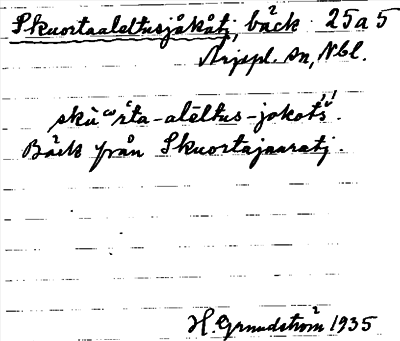 Skuortaaleltusjåkåtj, bäck 25a5
Arjspl. sn, Nbl.
skùᵒʳta-alēltus-jokotš́.
Bäck från Skuortajauratj.
H. Grundström 1935